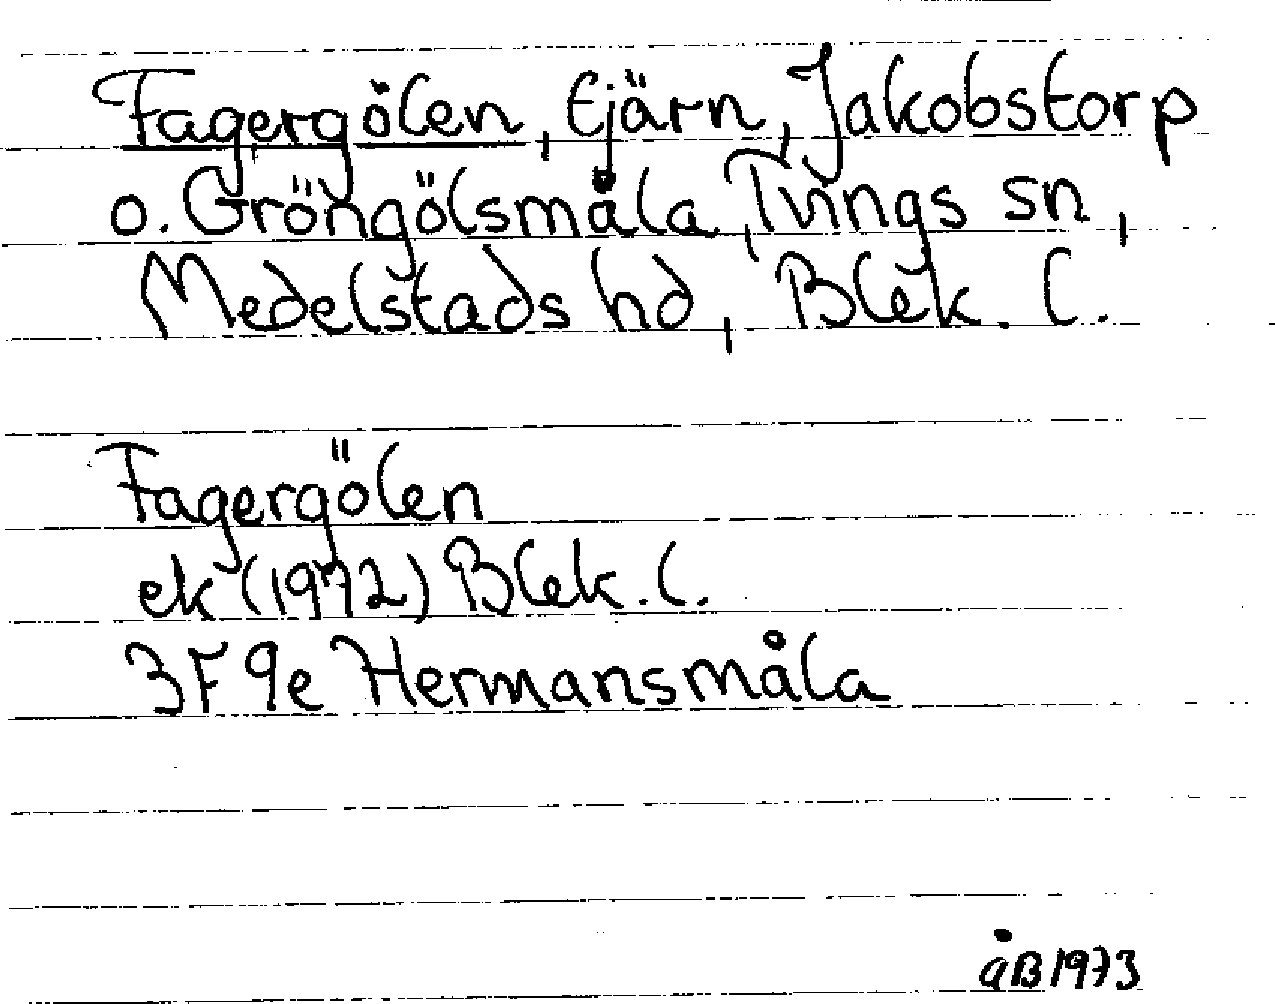 Fagergölen, tjärn, Jakobstorp
o. Gröngölsmåla, Tvings sn,
Medelstads hd, Blek. l.
Fagergölen
ek (1972) Blek. l.
3F 9e Hermansmåla
åB 1973